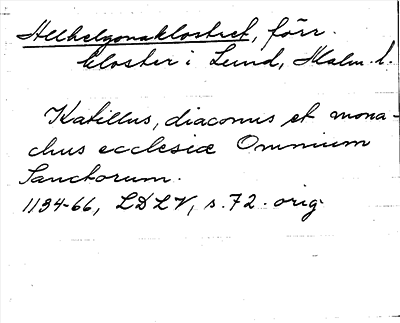 Allhelgonaklostret, förr.
kloster i Lund, Malm. l.
Katillus, diaconus et mona-
chus ecclesiæ Omnium
Sanctorum.
1134-66, LDLV, s. 72. orig.